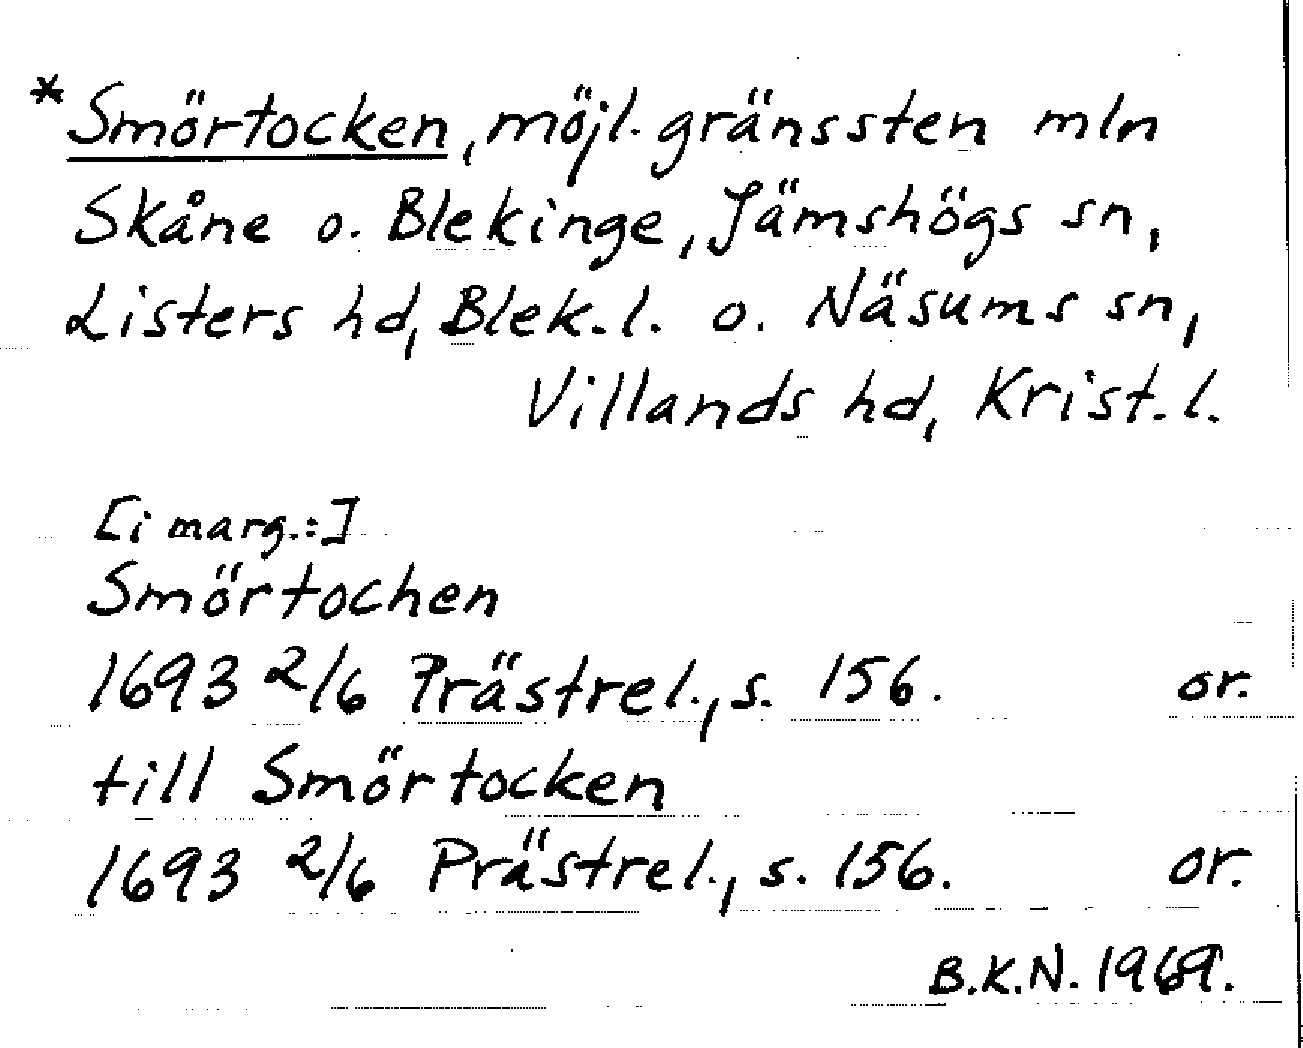 *Smörtocken, möjl. gränssten mln
Skåne o. Blekinge, Jämshögs sn,
Listers hd, Blek. l. o. Näsums sn,
Villands hd, Krist. l.
[i marg.:]
Smörtochen
1693 2/6 Prästrel., s. 156. or.
till Smörtocken
1693 2/6 Prästrel., s. 156. or.
B.K.N. 1969.